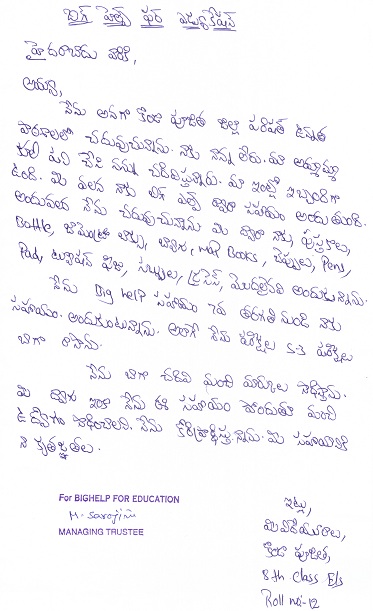 బిగ్ హెల్ప్ ఫర్ ఎడ్యుకేషన్
హైదరాబాదు వారికి,
అయ్యా,
నేను అనగా కొండా పూజిత జిల్లా పరిషత్ ఉన్నత
పాఠశాలలో చదువుచున్నాను. నాకు నాన్న లేరు. మా అమ్మమ్మ
కూలి పని చేసి నన్ను చదివిస్తున్నారు. మా ఇంట్లో ఇబ్బందిగా
ఉంది. మీ వలన నాకు బిగ్ హెల్ప్ ద్వారా సహాయం అందుతుంది.
అందువలన నేను చదువుచున్నాను మీ ద్వారా నాకు, పుస్తకాలు,
Bottle, జామెట్రీ బాక్సు, బ్యాగు, Note Books, చెప్పులు, Pens,
Pad, ట్యూషన్ ఫీజు, సబ్బులు, డ్రెస్, మొదలైనవి అందుకున్నాను.
నేను Big help సహాయం 7వ తరగతి నుండి నాకు
సహాయం. అందుకుంటున్నాను. అలాగే నేను పరీక్షలు S-3 పరీక్షలు
బాగా రాసాను.
నేను బాగా చదివి మంచి మార్కులు సాధిస్తాను.
మీ ద్వారా ఇలా నేను ఈ సహాయం పొందుతూ మంచి
ఉద్యోగం సాధించాలని. నేను కోరుకుంటున్నాను. మీ సహాయానికి
నా కృతజ్ఞతలు.
For BIGHELP FOR EDUCATION
M. Sarojini
MANAGING TRUSTEE
ఇట్లు,
మీ విధేయురాలు,
కొండా పూజిత,
8th class E/s
Roll no:-12